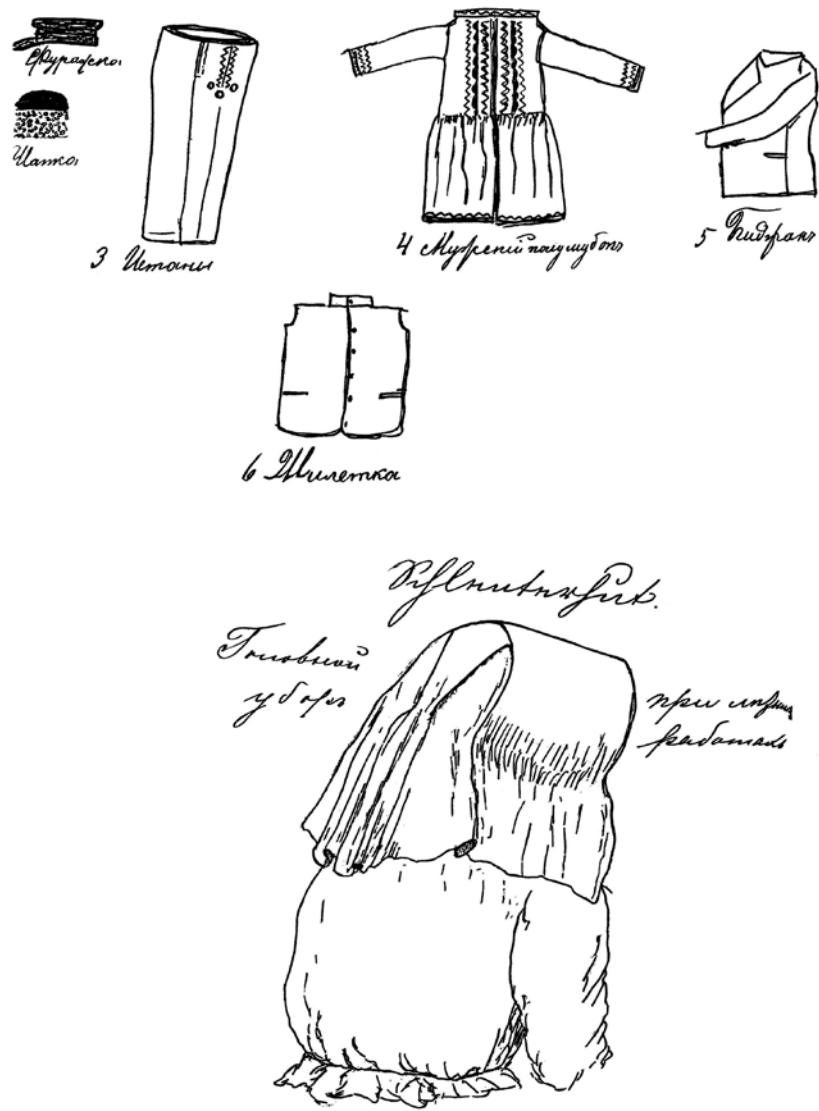 Фуражка
Шапка
3 Штаны
4 Мужскій полушубокъ
5 Пиджакъ
6 Жилетка
Schleuterhut.
Головной
уборъ
при
работахъ